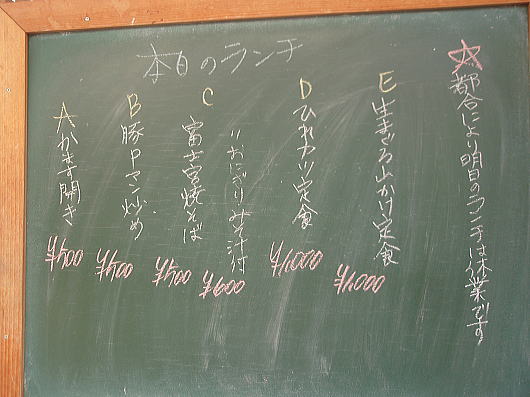 本日のランチ
☆都合により明日のランチは休業です
E 生まぐろ山かけ定食 ¥1,000
D ひれカツ定食 ¥1,000
〃おにぎりみそ汁付 ¥600
C 富士宮焼そば ¥500
B 豚Pマン炒め ¥500
A かます開き ¥500